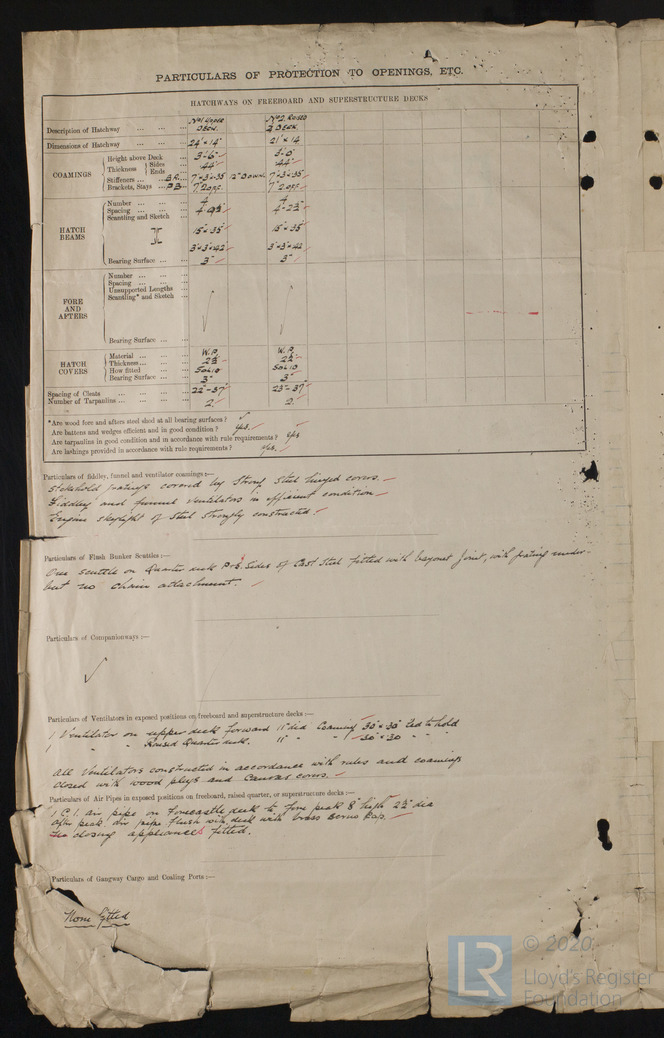 PARTICULARS OF PROTECTION TO OPENINGS, ETC.
HATCHWAYS ON FREEBOARD AND SUPERSTRUCTURE DECKS
Description of Hatchway No 1 Upper Deck. No 2 Rused Q Deck.
Dimensions of Hatchway 24' x 14' 21' x 14
COAMINGS
Height above Deck 3'-6" 3'-0"
Thickness Sides Ends .44" .44"
Stiffeners B.R. 7"x3"x.35 12" Down. 7"x3"x.35"
Brackets, Stays P B 7' 2 off. 7' 2 off.
HATCH BEAMS
Number 4 4
Spacing
Scantling and Sketch
15"x.35" 15"x.35
3"x3"x.42 3"x3"x.42
Bearing Surface 3" 3"
FORE AND AFTERS
Number
Spacing
Unsupported Lengths
Scantling* and Sketch
Bearing Surface
HATCH COVERS
Material W.P. W.P.
Thickness 2½ 2½
How fitted Solid Solid
Bearing Surface 3" 3"
Spacing of Cleats 22"-37" 23"-37"
Number of Tarpaulins 2 2
*Are wood fore and afters steel shod at all bearing surfaces?
Are battens and wedges efficient and in good condition? yes.
Are tarpaulins in good condition and in accordance with rule requirements? yes
Are lashings provided in accordance with rule requirements? yes.
Particulars of fiddley, funnel and ventilator coamings:—
Stokehold gratings covered by strong steel hinged covers.
Fiddley and funnel ventilators in efficient condition
Engine skylight of steel strongly constructed.
Particulars of Flush Bunker Scuttles:—
One scuttle on Quarter deck P.&S. Sides of Cast Steel fitted with bayonet joint, with grating under-
but no chain attachment.
Particulars of Companionways:—
Particulars of Ventilators in exposed positions on freeboard and superstructure decks:—
1 Ventilator on upper deck forward 11" dia Coaming 30" x 30"
1 " " Raised Quarter deck. 11" " " 30 x 30 " "
All Ventilators constructed in accordance with rules and coamings
closed with wood plugs and Canvas covers.
Particulars of Air Pipes in exposed positions on freeboard, raised quarter, or superstructure decks:—
1 C.I. air pipe on forecastle deck to fore peak 8" high 2½ dia
After peak air pipe flush with deck with brass screw caps.
closing appliances fitted.
Particulars of Gangway Cargo and Coaling Ports:—
None fitted
LR
© 2020
Lloyd's Register
Foundation